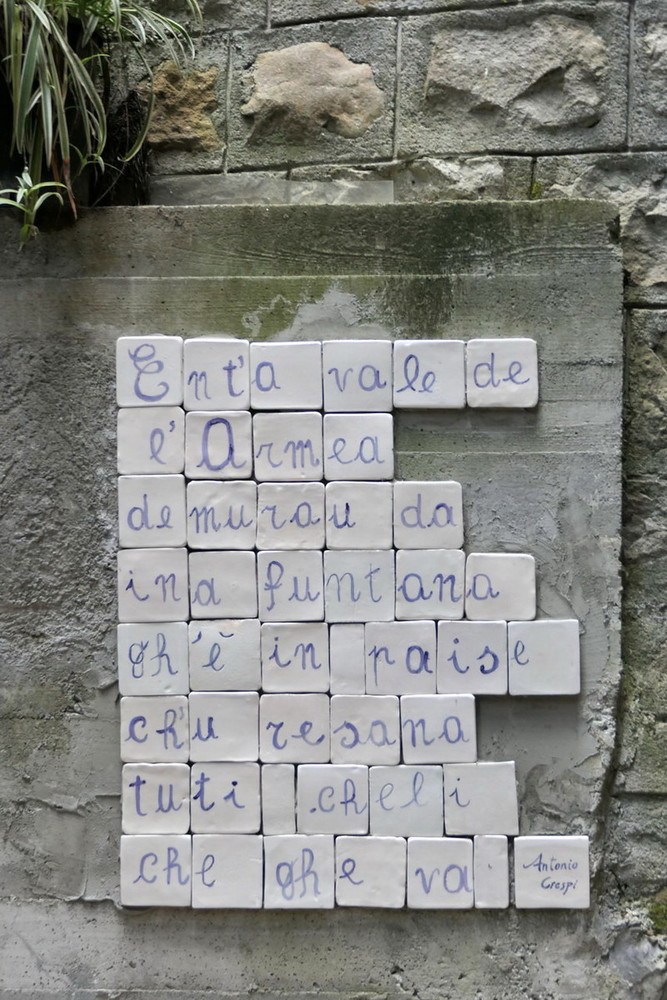 Ent'a vale de
l'Armea
demurau da
ina funtana
gh'è in paise
ch'u resana
tuti cheli
che ghe va
Antonio
Crespi